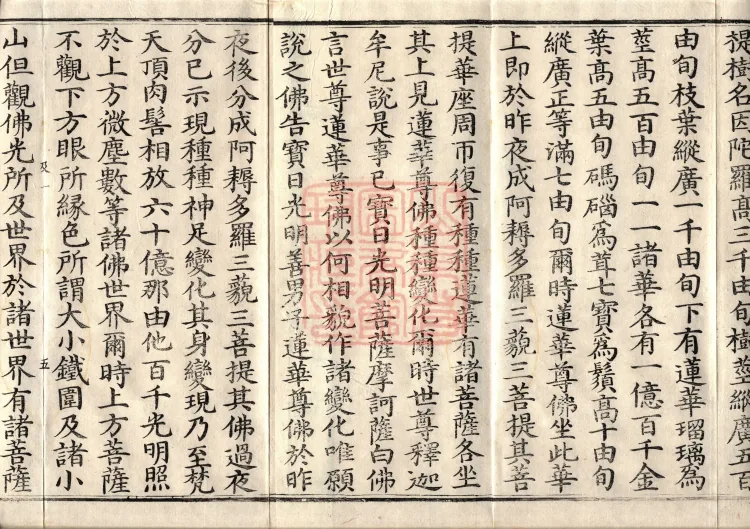 提樹名因陀羅高三千由旬樹莖縱廣五百
由旬枝葉縱廣一千由旬下有蓮華瑠璃爲
莖高五百由旬一一諸華各有一億百千金
葉高五由旬碼碯爲茸七寶爲鬚高十由旬
縱廣正等滿七由旬爾時蓮華尊佛坐此華
上即於昨夜成阿耨多羅三藐三菩提其菩
提華座周帀復有種種蓮華有諸菩薩各坐
其上見蓮華尊佛種種變化爾時世尊釋迦
牟尼說是事已寶日光明菩薩摩訶薩白佛
言世尊蓮華尊佛以何相貌作諸變化唯願
說之佛告寶日光明善男子蓮華尊佛於昨
夜後分成阿耨多羅三藐三菩提其佛過夜
分已示現種種神足變化其身變現乃至梵
天頂肉髻相放六十億那由他百千光明照
於上方微塵數等諸佛世界爾時上方菩薩
不觀下方眼所緣色所謂大小鐵圍及諸小
山但觀佛光所及世界於諸世界有諸菩薩
及一
五